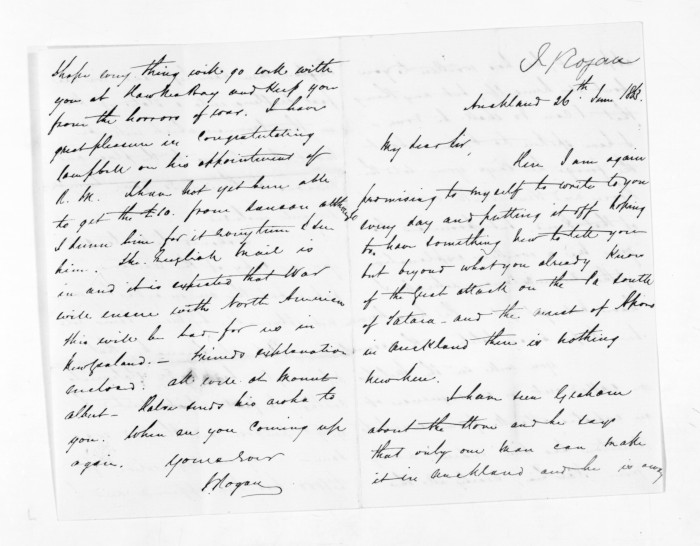 J Rogan
Auckland 26th June 1863.
My dear Sir,
Here I am again
promising to myself to write to you
every day and putting it off hoping
to have something new to tell you
but beyond what you already know
of the Geest attack on the Pa south
of Tatara - and the arrest of
in Auckland there is nothing
new here.
I have seen Graham
about the Stove and he says
that only one man can make
it in Auckland and he is away
I hope every thing will go well with
you at Hawkes Bay and keep you
from the horrors of war. I have
great pleasure in congratulating
Campbell on his appointment of
R. M. I have not yet been able
to get the £10. from although
I dunn him for it every time I see
him. The English Mail is
in and it is expected that War
will ensue with North American
this will be bad for us in
New Zealand. - explanation
enclosed. All well at Mount
Albert - sends his aroha to
you. When are you coming up
again. Yours Ever
J Rogan